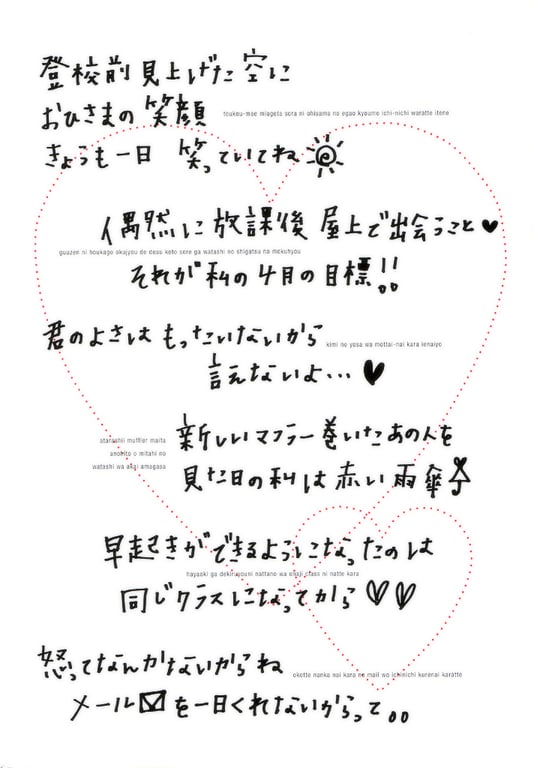 登校前 見上げた 空に
おひさまの 笑顔
toukou-mae miageta sora ni ohisama no egao kyoumo ichi-nichi waratte itene
きょうも一日 笑っていてね
偶然に 放課後 屋上で出会うこと♥
guuzen ni houkago okujyou de deau koto sore ga watashi no shigatsu na mokuhyou
それが私の4月の目標!!
君のよさは もったいないから
kimi no yosa wa mottai-nai kara ienaiyo
言えないよ…♥
新しいマフラー巻いたあの人を
atarashii muffler maita
anohito o mitahi no
watashi wa akai amagasa
見た日の私は 赤い 雨傘
早起きができるようになったのは
hayaoki ga dekiruyouni nattano wa onaji class ni natte kara
同じクラスになってから♡♡
怒ってなんかないからね
okotte nanka nai kara ne mail wo ichinichi kurenai karatte
メール✉を一日くれないからって。。